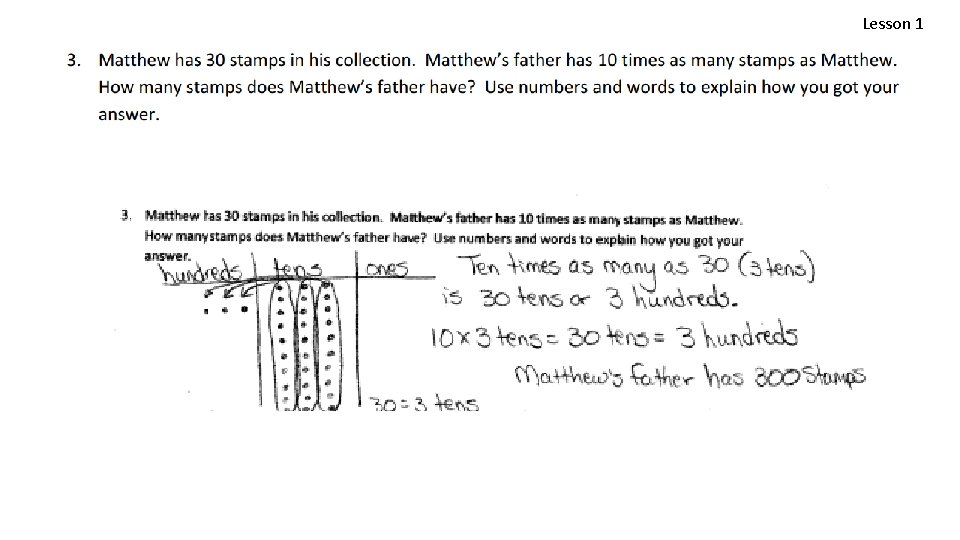 Lesson 1
3. Matthew has 30 stamps in his collection. Matthew's father has 10 times as many stamps as Matthew.
How many stamps does Matthew's father have? Use numbers and words to explain how you got your
answer.
3. Matthew has 30 stamps in his collection. Matthew's father has 10 times as many stamps as Matthew.
How many stamps does Matthew's father have? Use numbers and words to explain how you got your
answer.
hundreds tens ones
Ten times as many as 30 (3 tens)
is 30 tens or 3 hundreds.
10 x 3 tens = 30 tens = 3 hundreds
Matthew's father has 300 stamps
30 = 3 tens